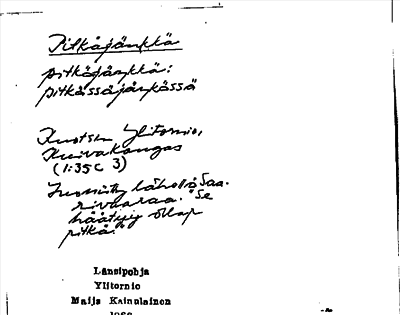 Pitkäjänkkä
pitkäjänkkä:
pitkässäjänkässä
Ruotsin Ylitornio,
Kuivakangas
(1:35 C 3)
lähellä Saa-
rivaaraa. "Se
häätyy ollap
pitkä."
Länsipohja
Ylitornio
Maija Kainulainen